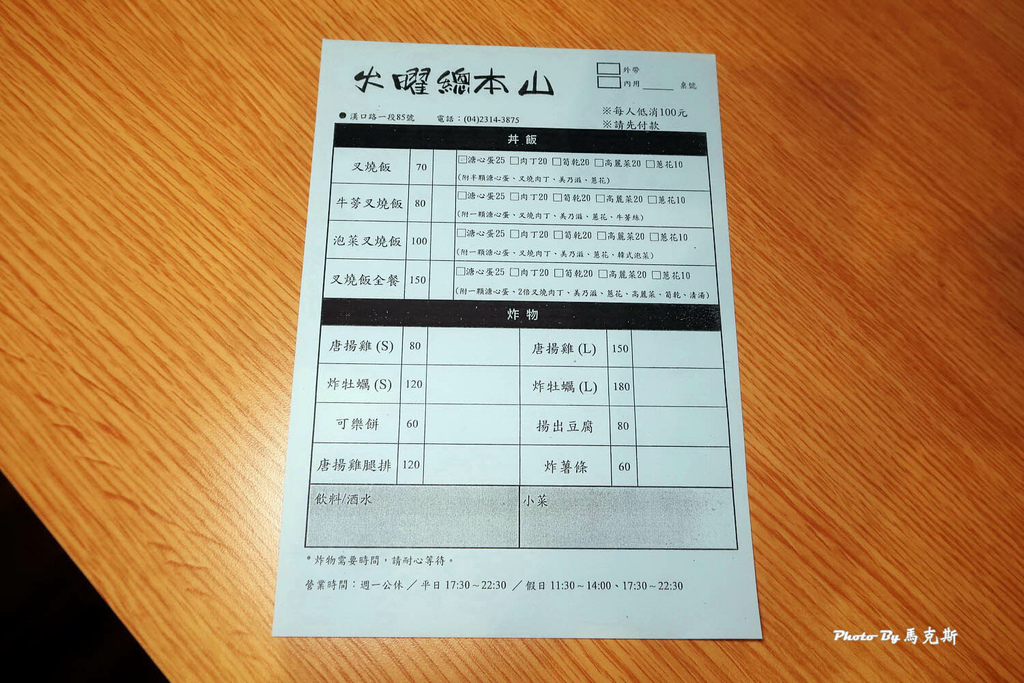 火曜總本山
□ 外帶
□ 內用 ______ 桌號
●漢口路一段85號 電話：(04)2314-3875
※每人低消100元
※請先付款
丼飯
叉燒飯 70 □溏心蛋25 □肉丁20 □筍乾20 □高麗菜20 □蔥花10
(附半顆溏心蛋、叉燒肉丁、美乃滋、蔥花)
牛蒡叉燒飯 80 □溏心蛋25 □肉丁20 □筍乾20 □高麗菜20 □蔥花10
(附一顆溏心蛋、叉燒肉丁、美乃滋、蔥花、牛蒡絲)
泡菜叉燒飯 100 □溏心蛋25 □肉丁20 □筍乾20 □高麗菜20 □蔥花10
(附一顆溏心蛋、叉燒肉丁、美乃滋、蔥花、韓式泡菜)
叉燒飯全餐 150 □溏心蛋25 □肉丁20 □筍乾20 □高麗菜20 □蔥花10
(附一顆溏心蛋、2倍叉燒肉丁、美乃滋、蔥花、高麗菜、筍乾、清湯)
炸物
唐揚雞 (S) 80 唐揚雞 (L) 150
炸牡蠣 (S) 120 炸牡蠣 (L) 180
可樂餅 60 揚出豆腐 80
唐揚雞腿排 120 炸薯條 60
飲料/酒水 小菜
* 炸物需要時間，請耐心等待。
營業時間：週一公休 ／ 平日 17:30～22:30 ／ 假日 11:30～14:00、17:30～22:30
Photo By 馬克斯